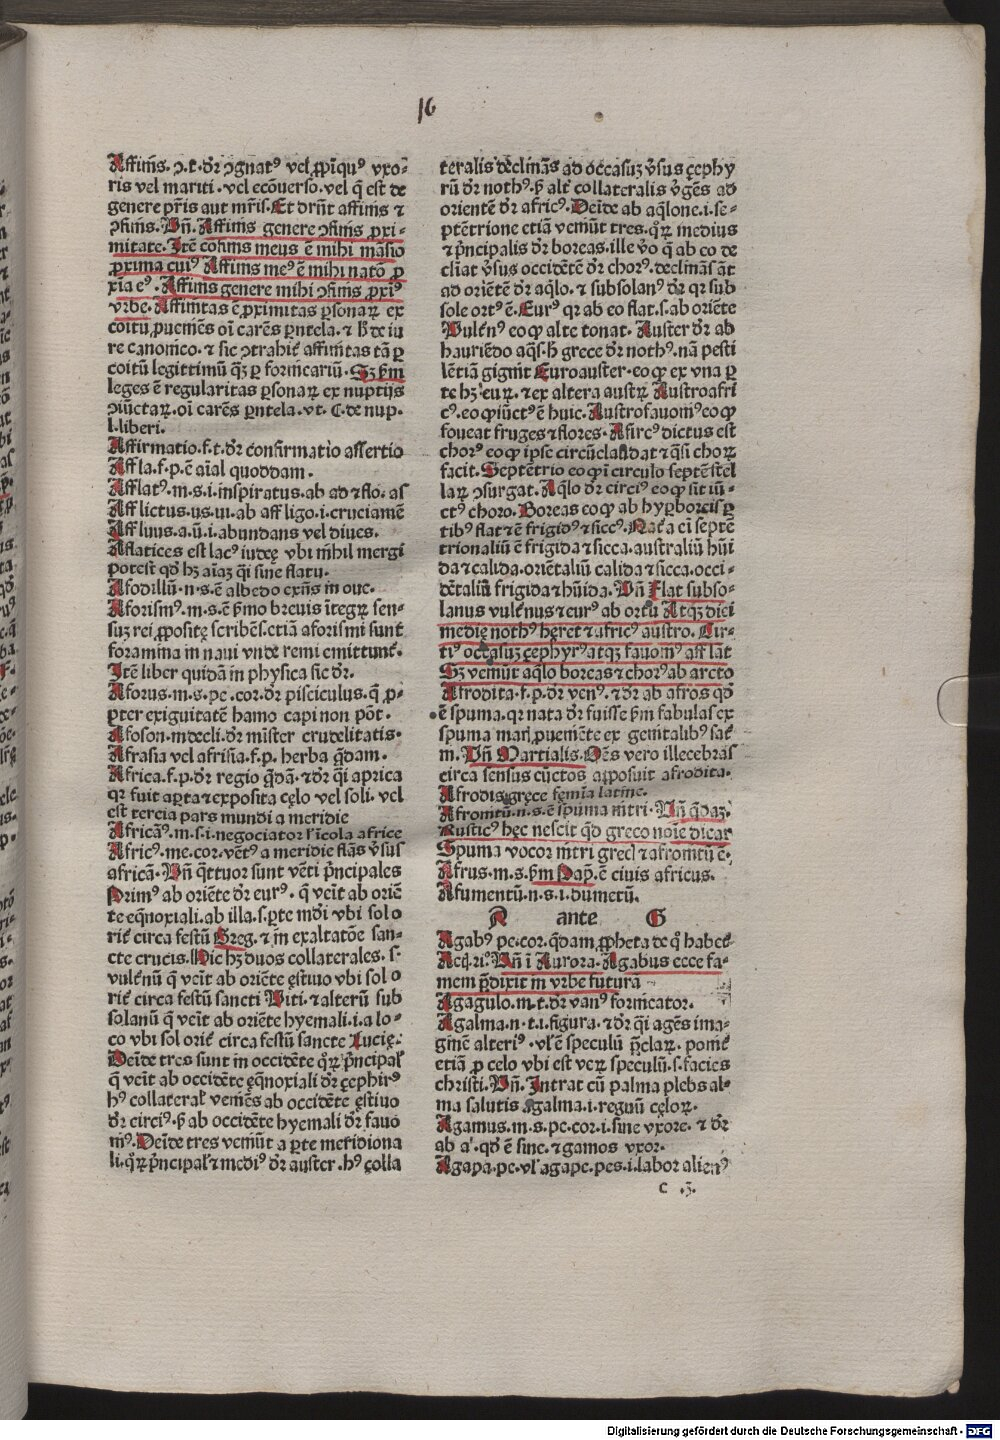 16
Affinis .ↄ.t. dr̄ ↄgnatꝰ vel ꝓpīquꝰ vxo-
ris vel mariti . vel ecōuerso . vel q̄ est de
genere pr̄is aut mr̄is. Et dr̄nt affinis ⁊
ↄfinis. Vn̄. Affinis genere ↄfinis ꝓxi-
mitate. Itē cōfinis meus ē mihi māsio
ꝓxima cuiꝰ Affinis meꝰ ē mihi natōe ꝓ
xīa eꝰ. Affinis genere mihi ↄfinis ꝓxiꝰ
vrbe. Affinitas ē ꝓximitas ꝑsonaꝝ ex
coitu ꝓueniēs oī carēs ꝑntela. ⁊ h̄ de iu
re canonico. ⁊ sic ↄtrahit̄ affinitas tā ꝑ
coitū legittimū qꝫ ꝑ fornicariū. Sꝫ ẜm
leges ē regularitas ꝑsonaꝝ ex nuptijs
ↄiūctaꝝ. oī carēs ꝑntela. vt. C. de nup.
l. liberi.
Affirmatio .f.t. dr̄ confirmatio assertio
Affla .f.p. ē aīal quoddam.
Afflatꝰ .m.s.i. inspiratus . ab ad ⁊ flo. as
Afflictus .us. ui. ab affligo .i. cruciamē
Affluus .a.ū.i. abundans vel diues.
Aflatices est lacꝰ iudeę vbi nihil mergi
potest qd̄ hꝫ aīaꝫ q̄i siue flatū.
Afodillū .n.s. ē albedo exn̄s in oue.
Aforismꝰ .m.s. ē ẜmo breuis ītegꝝ sen-
suꝫ rei ꝓpositę scribēs. etiā aforismi sunt
foramina in naui vnde remi emittunt̄.
Itē liber quidā in physica sic dr̄.
Aforus .m.s. pe. cor. dr̄ pisciculus. q̄ ꝓ-
pter exiguitatē hamo capi non pōt.
Afoson .m decli. dr̄ mister crudelitatis.
Afrasia vel afrisia .f.p. herba q̄dam.
Africa .f.p. dr̄ regio q̄dā. ⁊ dr̄ q̄i aprica
qꝛ fuit aꝑta ⁊ exposita cęlo vel soli. vel
est tercia pars mundi a meridie
Africāꝰ .m.s.i. negociator l̄ īcola africe
Africꝰ .me. cor. vētꝰ a meridie flās v̄sus
africā. Vn̄ q̄ttuor sunt vēti pr̄ncipales
Primꝰ ab oriēte dr̄ eurꝰ. q̄ veīt ab oriē
te eq̄noxiali. ab illa .s. ꝑte mdī vbi sol o
rit̄ circa festū Greg. ⁊ in exaltatōe san-
cte crucis. Hic hꝫ duos collaterales. s.
vulᵵnū q̄ veīt ab oriēte ęstiuo vbi sol o
rit̄ circa festū sancti Viti. ⁊ alterū sub
solanū q̄ veīt ab oriēte hyemali .i. a lo-
co vbi sol orit̄ circa festū sancte Lucię.
Deīde tres sunt in occidēte qꝝ pr̄ncipal̄
q̄ veīt ab occidēte ęq̄noxiali dr̄ cęphirꝰ
hꝰ collateral̄ veniēs ab occidēte ęstiuo
dr̄ circiꝰ. ẜ ab occidēte hyemali dr̄ fauo
niꝰ. Deīde tres veniūt a ꝑte meridiona
li. qꝝ pr̄ncipal̄ ⁊ mediꝰ dr̄ auster. hꝰ colla
teralis declinās ad occasuꝫ v̄sus cęphy
rū dr̄ nothꝰ. ẜ alt̄ collateralis v̄gēs ad
orientē dr̄ africꝰ. Deīde ab aq̄lone .i. se-
ptētrione etiā veniūt tres. qꝝ medius
⁊ pr̄ncipalis dr̄ boreas. ille v̄o q̄ ab eo de
cliat v̄sus occidētē dr̄ chorꝰ. declināſ āt
ad oriētē dr̄ aq̄lo. ⁊ subsolanꝰ dr̄ qꝛ sub
sole ortꝰ ē. Eurꝰ qꝛ ab eo flat .s. ab oriēte
Vulᵵnꝰ eo ꝙ alte tonat. Auster dr̄ ab
hauriēdo aq̄s. h̄ grece dr̄ nothꝰ. nā pesti
lētiā gignit Euroauster. eo ꝙ ex vna ꝑ
te hꝫ euꝝ. ⁊ ex altera austꝝ Austroafri
cꝰ. eo ꝙ iūctꝰ ē huic. Austrofauonīꝰ eo ꝙ
foueat fruges ⁊ flores. Afircꝰ dictus est
chorꝰ eo ꝙ ipse circūclaudat ⁊ q̄si choꝝ
facit. Septētrio eo ꝙ ī circulo septē stel
laꝝ ↄsurgat. Aq̄lo dr̄ circiꝰ eo ꝙ sit iū-
ctꝰ choro. Boreas eo ꝙ ab hyꝑboreis ꝑ
tibꝰ flat ⁊ ē frigidꝰ ⁊ siccꝰ. Nat̄a ei septē
trionaliū ē frigida ⁊ sicca. australiū hūi
da ⁊ calida. oriētaliū calida ⁊ sicca. occi-
dētaliū frigida ⁊ hūida. Vn̄ Flat subso-
lanus vulᵵnus ⁊ eurꝰ ab ortu Atqꝫ diei
medię nothꝰ hęret ⁊ africꝰ austro. Cir-
tiꝰ occasuꝫ cęphyrꝰ atqꝫ fauonīꝰ afflāt
Sꝫ veniūt aq̄lo boreas ⁊ chorꝰ ab arcto
Afrodita .f.p. dr̄ venꝰ. ⁊ dr̄ ab afros qd̄
ē spuma. qꝛ nata dr̄ fuisse ẜm fabulas ex
spuma mari ꝓueniēte ex genitalibꝰ sat̄
ni. Vn̄ Martialis. Oēs vero illecebras
circa sensus cūctos apposuit afrodita.
Afrodis gręce femīa latine.
Afronitū .n.s. ē spuma nitri. Vn̄ q̄daꝫ.
Rusticꝰ hęc nescit qd̄ greco noīe dicar
Spuma vocor nitri grecꝰ ⁊ afronitū ē.
Afrus .m.s. ẜm Pap̄. ē ciuis africus.
Afumentū .n.s.i. dumetū.
A ante G
Agabꝰ pe. cor. q̄dam ꝓpheta de q̊ habet̄
Act. xi. Vn̄ ī Aurora. Agabus ecce fa-
mem p̄dixit in vrbe futurā
Agagulo .m.t. dr̄ vanꝰ fornicator.
Agalma .n.t.i. figura. ⁊ dr̄ q̄i agēs ima-
ginē alteriꝰ. vl̄ ē speculū p̄claꝝ. ponit̄
etiā ꝓ celo vbi est veꝝ speculū .s. facies
christi. Vn̄. Intrat cū palma plebs al-
ma salutis agalma .i. regnū cęloꝝ.
Agamus .m.s. pe. cor .i. sine vxore. ⁊ dr̄
ab a'. qd̄ ē sine. ⁊ gamos vxor.
Agapa .pe. vl̄ agape. pes .i. labor alienꝰ
c .3.
Digitalisierung gefördert durch die Deutsche Forschungsgemeinschaft - DFG